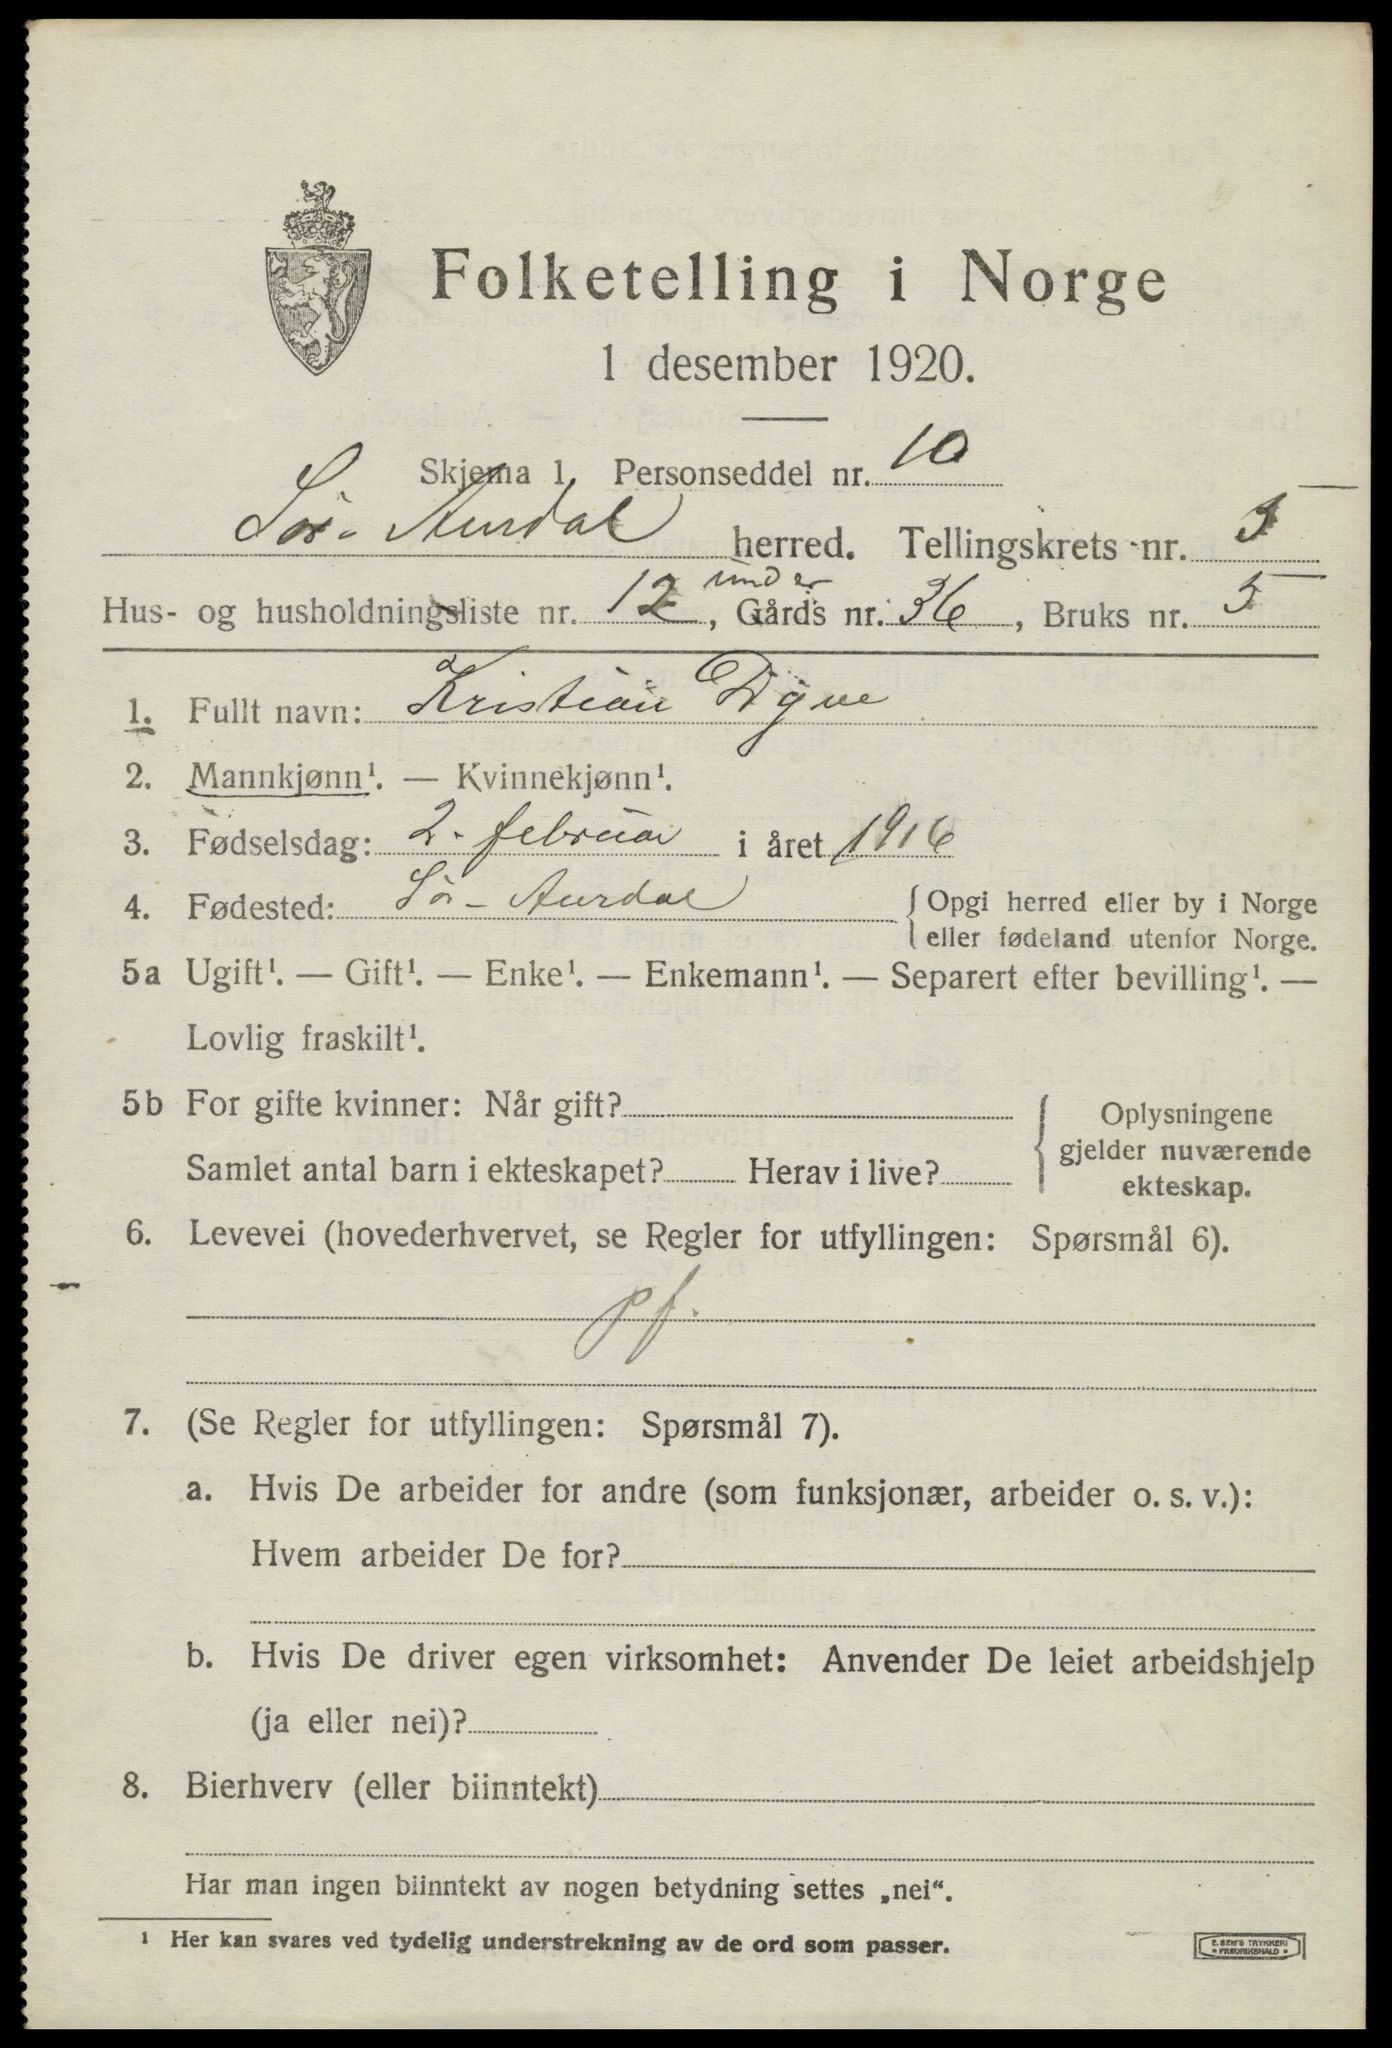 Folketelling i Norge
1 desember 1920.
Skjema 1. Personseddel nr. 10
Sør-Aurdal herred. Tellingskrets nr. 5
under
Hus- og husholdningsliste nr. 12, Gårds nr. 36, Bruks nr. 5
1. Fullt navn: Kristian Dÿve
2. Mannkjønn¹. — Kvinnekjønn¹.
3. Fødselsdag: 2. februar i året 1916
4. Fødested: Sør-Aurdal { Opgi herred eller by i Norge
eller fødeland utenfor Norge.
5a Ugift¹. — Gift¹. — Enke¹. — Enkemann¹. — Separert efter bevilling¹. —
Lovlig fraskilt¹.
5b For gifte kvinner: Når gift?
Samlet antal barn i ekteskapet? Herav i live?
Oplysningene
gjelder nuværende
ekteskap.
6. Levevei (hovederhvervet, se Regler for utfyllingen: Spørsmål 6).
pf.
7. (Se Regler for utfyllingen: Spørsmål 7).
a. Hvis De arbeider for andre (som funksjonær, arbeider o. s. v.):
Hvem arbeider De for?
b. Hvis De driver egen virksomhet: Anvender De leiet arbeidshjelp
(ja eller nei)?
8. Bierhverv (eller biinntekt)
Har man ingen biinntekt av nogen betydning settes „nei“.
¹ Her kan svares ved tydelig understrekning av de ord som passer.
E. SEM'S TRYKKERI
• FREDRIKSHALD •